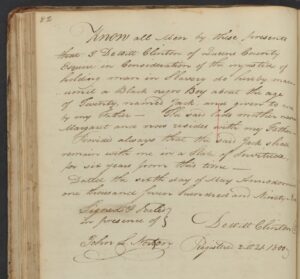 82
Know all Men by these presents
that I Dewitt Clinton of Queens County
Esquire in Consideration of the injustice of
holding man in Slavery do hereby manu-
-umit a Black negro Boy about the age
of Twenty, named Jack and given to me
by my Father — The said Jacks mother named
Margaret and now resides with my Father
Provided always that the said Jack shall
remain with me in a State of Servitude
for six years from this time —
Dated the sixth day of May
one thousand seven hundred and Ninety
Signed &
in presence of
Dewitt Clinton
John
Registered